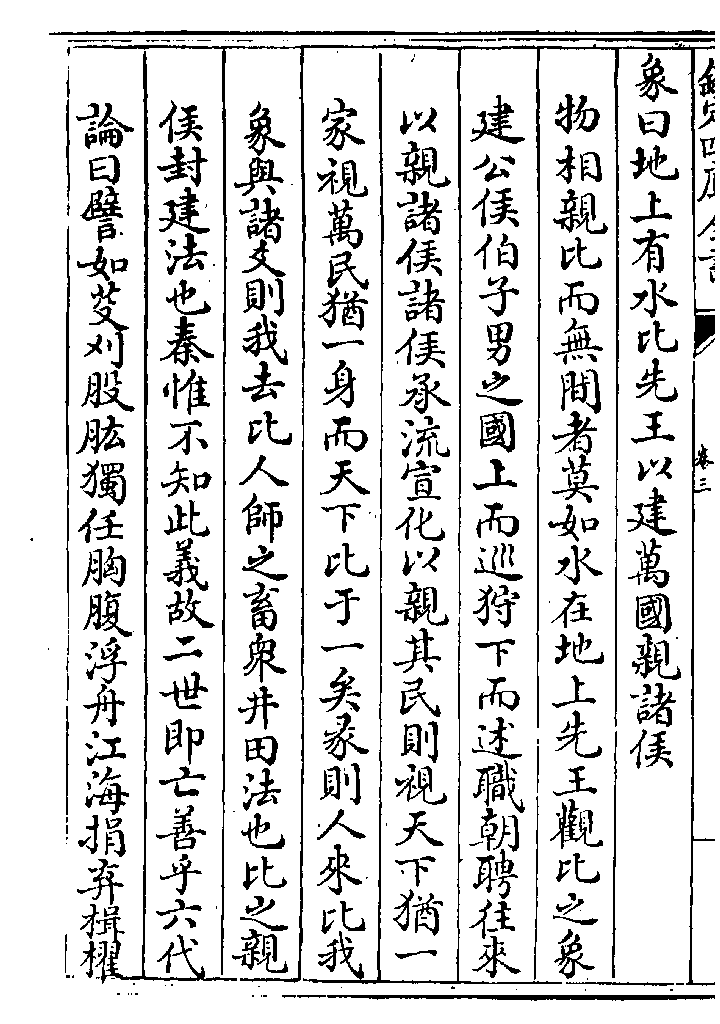 欽定四庫全書
卷三
象曰地上有水比先王以建萬國親諸侯
物相親比而無間者莫如水在地上先王觀比之象
建公侯伯子男之國上而巡狩下而述職朝聘往來
以親諸侯諸侯承流宣化以親其民則視天下猶一
家視萬民猶一身而天下比于一矣彖則人來比我
象與諸爻則我去比人師之畜衆井田法也比之親
侯封建法也秦惟不知此義故二世即亡善乎六代
論曰譬如芟刈股肱獨任胸腹浮舟江海捐弃楫櫂